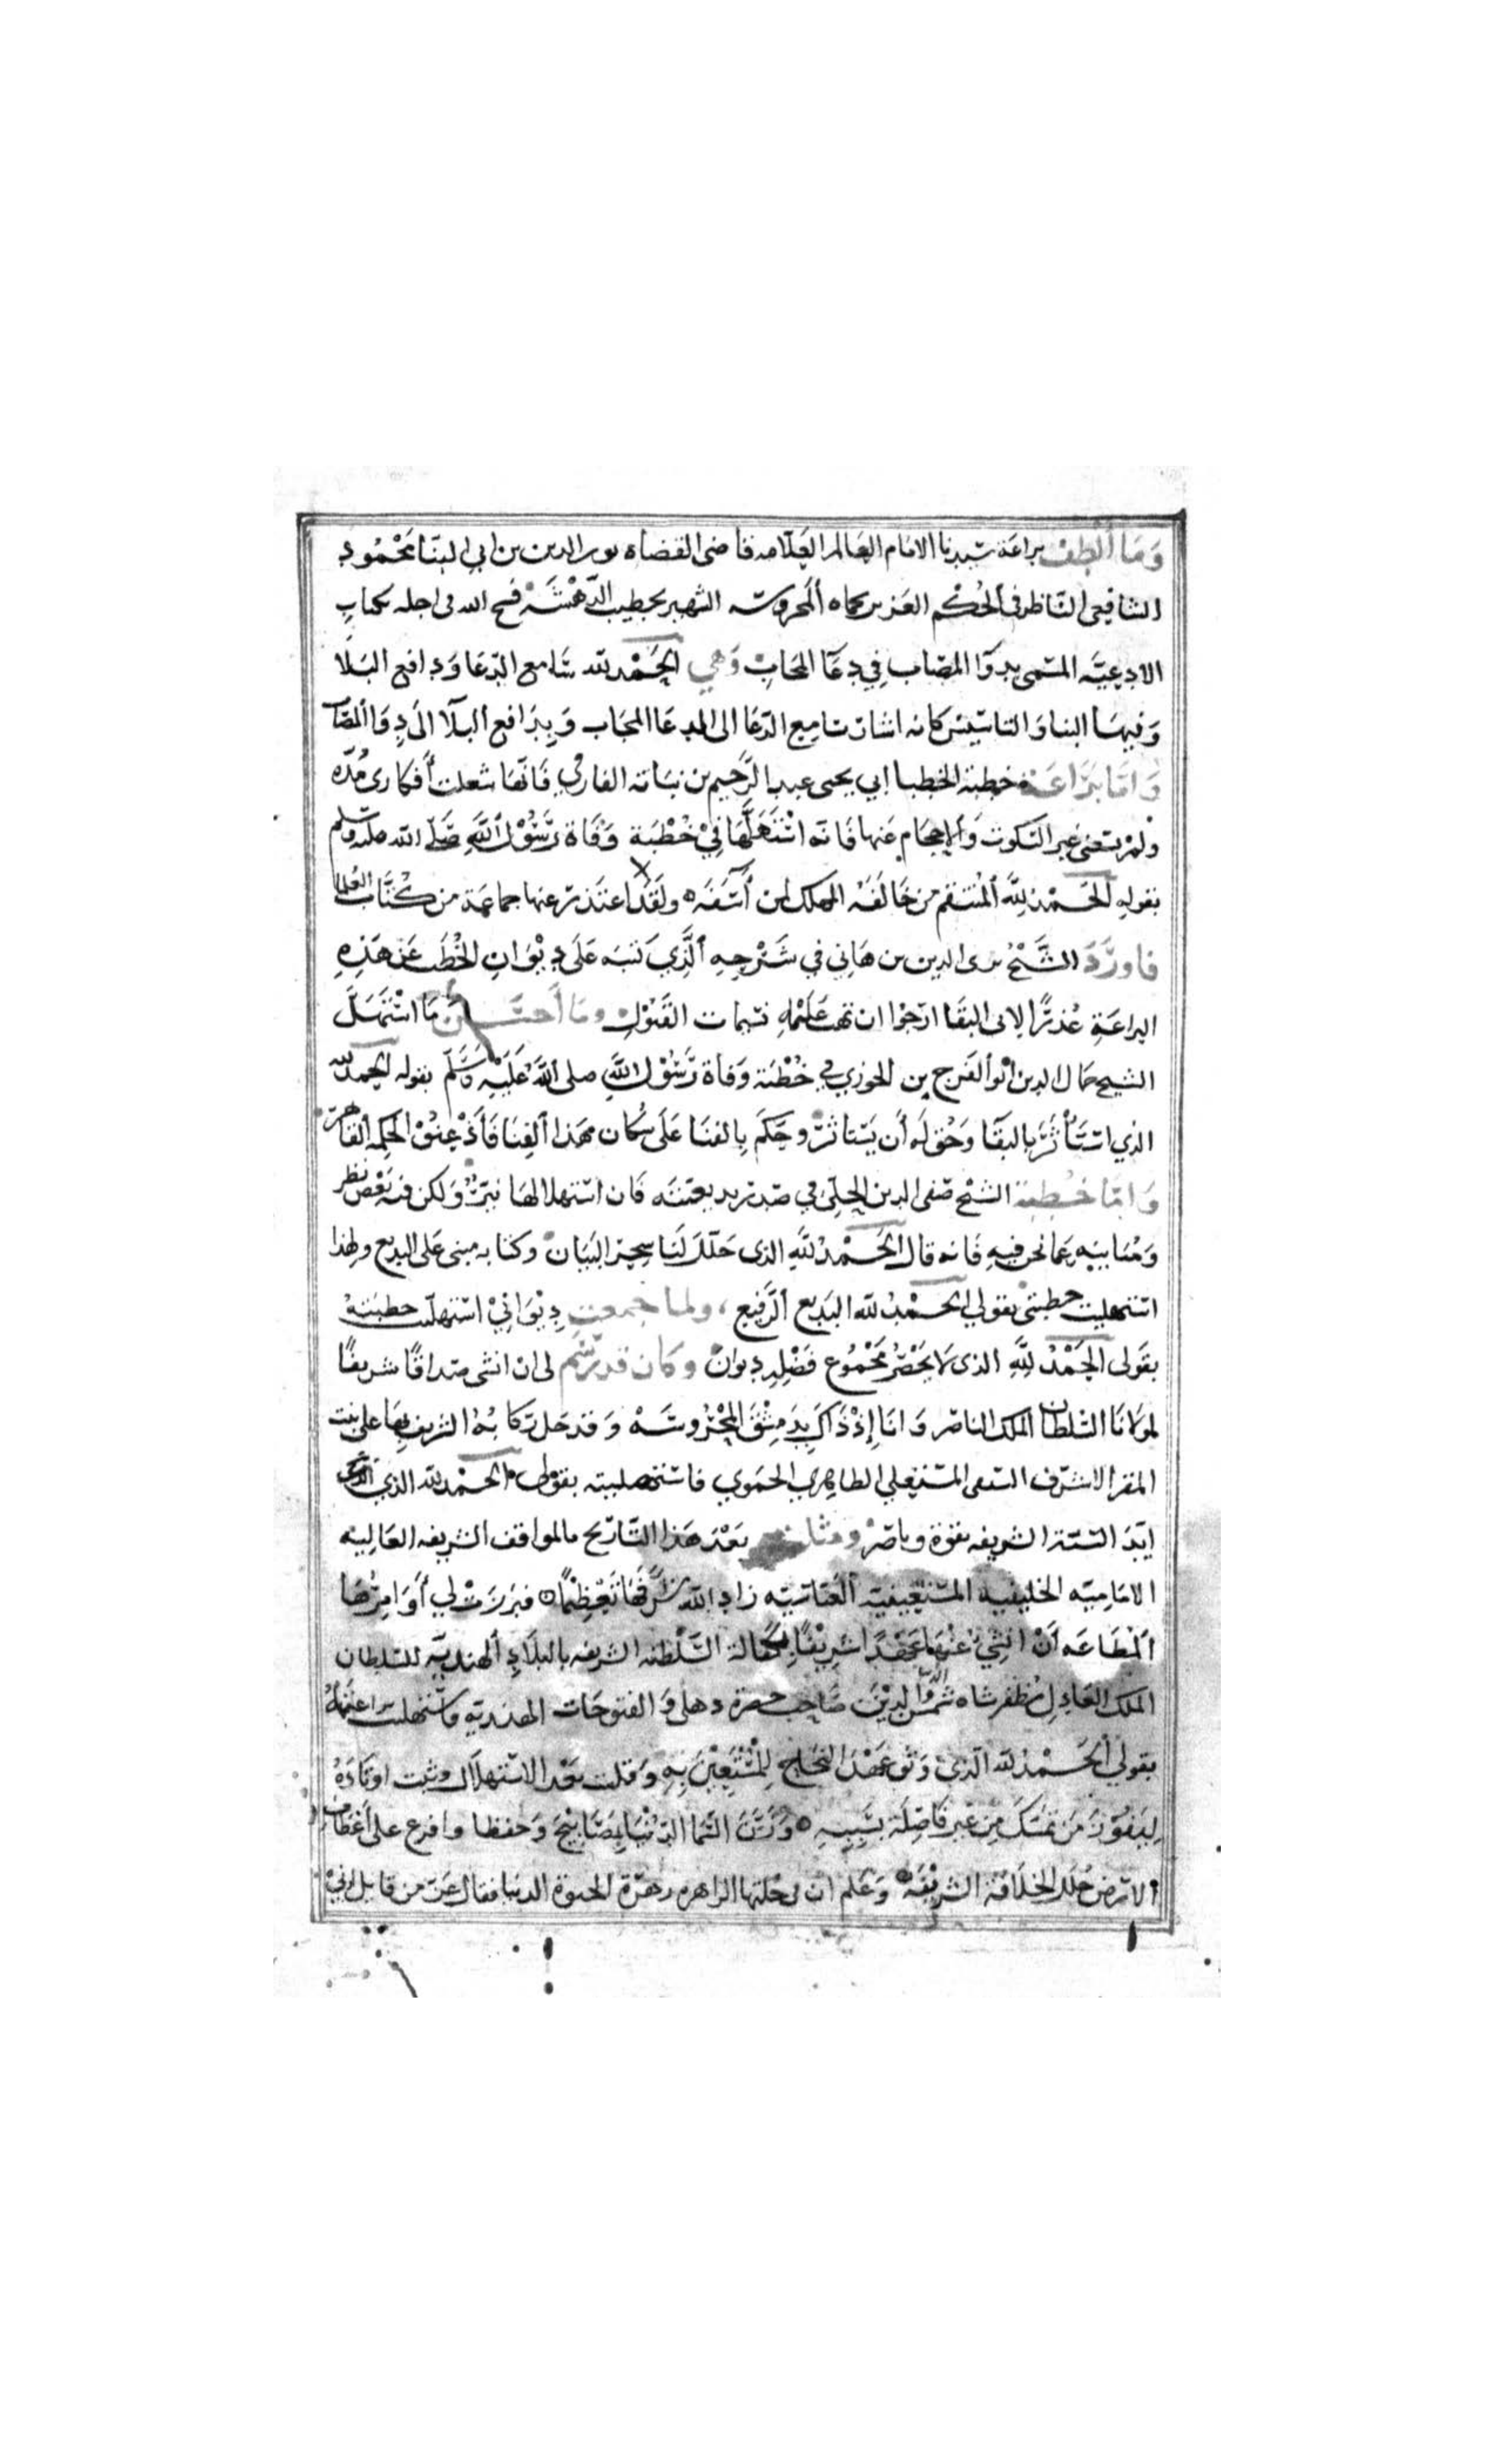 وَمَا أَلْطَفَ براعَة سَيدنا الامَام العَالم العَلّامه قاضى القضاه نور الدين بن ابي الثنا مَحْمُود
الشافِعى النَّاظر فى أَلحُكْم العَزيز بحماه المحروسه الشهير بخطيب الدَّهْشَه فسَح الله فى اجله لكتابِ
الادعِيَّه المسَمى بدوَا المصَاب فِي دعَآ المجَابْ وَهي الحَمْد لله سَامع الدّعَا وَدافع البَلَا
وَفيهَا البنا وَالتاسيسْ كانه اشار بسَامِع الدّعَا الى الدعَا المجَاب وَبِدَافع اَلبلَا الَى دِوَا اُلمصَاب
وَامَّا بَرَاعَة خطبة الخطبا ابي يحيى عبد الرَّحيم بن نباته الفارقي فَانّهَا شعلت أَفكارى مُدّه
وَلمْ يسَعنى غير السَكوت وَالاحجَام عَنها فَانه اسْتَهَلَّهَا فِيْ خُطْبَة وَفَاة رَسُوْل اللَّهِ صَلّى الله عليه وسلم
بقولهِ الحَمْد لِلَّه اَلمنتقِم من خَالَفَهُ المهلك لمن أَسَفَه ولَقَدْ اعتَذر عنها جماعَة من كُتَّاب العُلما
فاورَدَ الشَّيْخُ بدر الدين بن هَانِي في شَرْحِهِ اَلَّذِي كَتبَه عَلَى دِيْوَانِ الخُطَب عَنْ هَذِهِ
البراعَةِ عُذرًا لابى البقَا ارْجُوا ان تهب عَلَيْهِ نسَمات القَبُوْلِ وَمَا أَحسَن مَا اسْتَهَلَّ
الشيخ جمَال الدين أبو اَلفَرج بن الجوزى فى خُطْبَة وَفاة رَسُوْل اللَّهِ صلى اللَّه عَلَيْهِ وَسَلَّم بقوله الحمد لله
الذي اسْتَأْثَرَ بالبقَا وَحُق لَه أَن يَسْتَاثرَ وحَكَم بِالفنَا عَلَى سُكان هَذا اَلفِنَا فَأَذْعنُوْا لحكمه القَاهر
وَامَّا خُطبة الشَيْخ صَفى الدين الحِلِيّ في صَدر بديعيَّته فَان اسْتهلالهَا نيّرٌ وَلكن فيه بَعْضُ نظر
وَمُبَاينه عَما نحن فيهِ فَانه قالَ الحَمْدُ لِلَّهِ الذى حَلَّلَ لَنا سِحرَ البَيَان وكتابه مبنى عَلى البديع ولهذا
اسْتهليت خطبتي بقولي الحَمْد لله البَديع اَلرَّفيع ولما جمعت دِيْوَانِيْ اسْتهلَلت خطبته
بقَولى الحَمْدُ لِلَّهِ الذى لَا يَحْصُرُ مَجْمُوع فَضْلِه دِيوَانْ وَكان قد رسم لى ان انشى صَداقًا شريفًا
لموْلانَا السُّلطان الملك الناصر وَانَا إِذْ ذَاكَ بِدِمِشْقَ المَحْرُوسَه وَقد حَلَ ركابُهُ الشريف بهَا على بنت
المقر الاشرَف السَيفى الظاهري الحمَوي فاستهليته بقوْلى الحمْد لله الذي
ايّدَ السّنّة الشريفه بقوّة وناصر ومثله بَعْدَ هَذا التّاريخ بالمواقف الشريفه العَاليه
الامَامِيّه الخليفيه المسْتعِينيه العَبَّاسيّه زاد الله شَرَفَهَا تَعْظِيْمًا فبَرزت لي أَوَامِرُهَا
المطَاعَه أَنْ انشئ عَنْهَا عَهْدًا شَرِيْفًا بِكفالة السَّلْطنة الشريفه بالبلَادِ اَلهنديّه للسلطان
الملك العَادِل مظفر شاه شمس الدِّيْن صَاحِب حضرة دهلى وَالفتوحَات الهنديّهِ فاسْتهليت براعَتهُ
بقولي الحَمْد لله الَّذي وَثق عَهْدَ النجَاح لِلْمُسْتَعِيْن بِهِ وَقلت بَعْد الاسْتهلَال وثبت اوتادهُ
لِيَفُوْزَ مَن تمسَّك مِن غير فَاصِلَة بسَبَبِهِ وَزَيَّنَ السَّمَا الدُّنْيَا بِمَصَابِيْحَ وَحفظا وافرغ على أَعْطَاف
الارْض حُلَلَ الخلَافة الشرِيْفَه وَعَلم ان في خلتها الزاهرة زهرَة الحيوة الدنيا فقال عَزّ من قايل اِنِّيْ